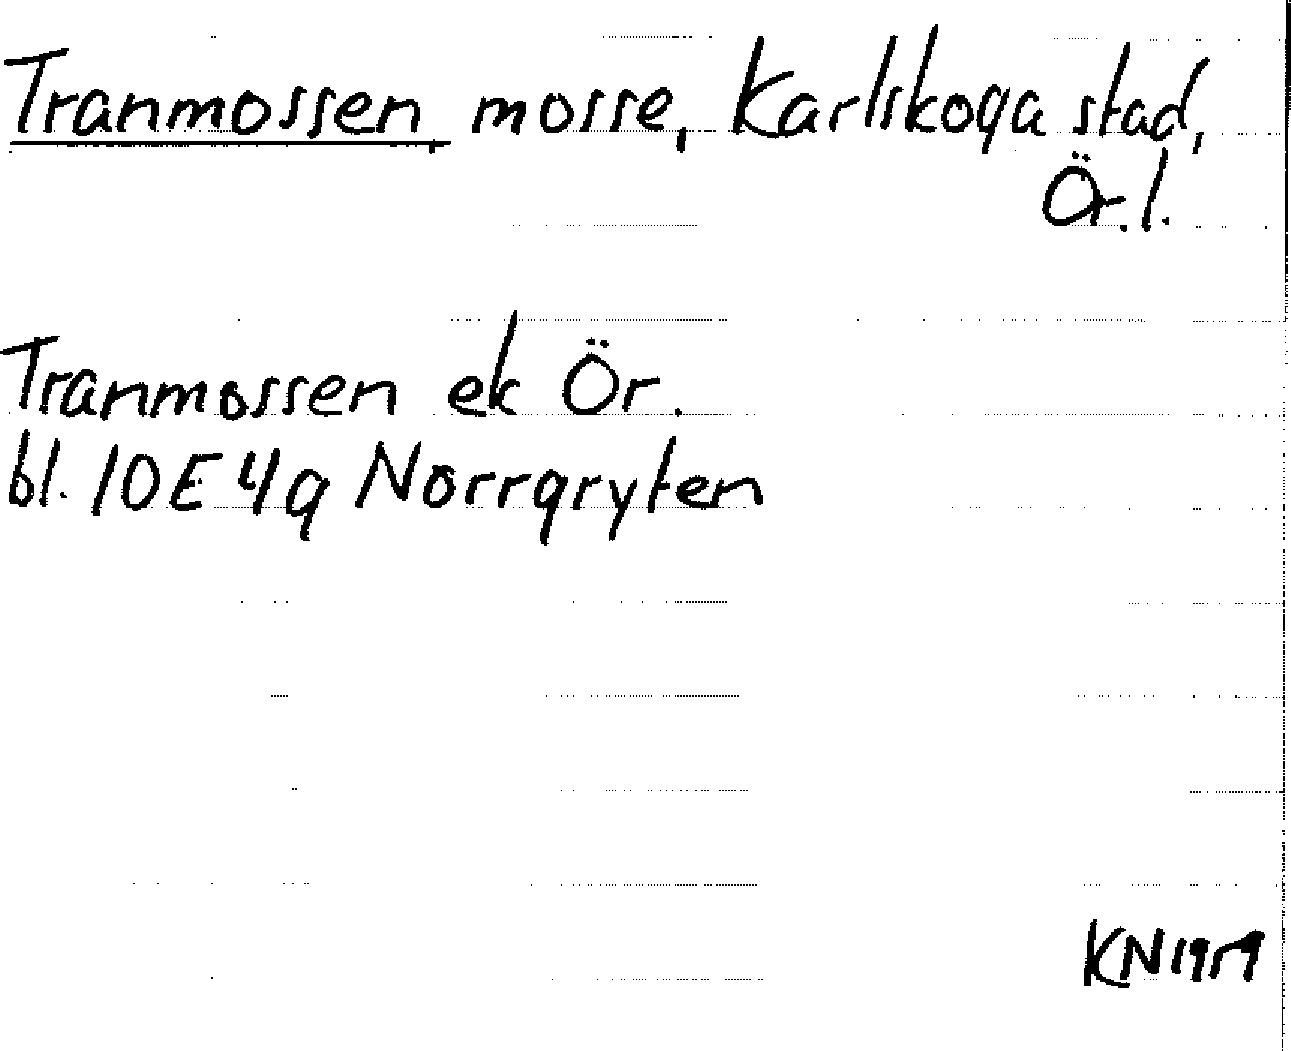 Tranmossen, mosse, Karlskoga stad,
Ör. l.
Tranmossen ek Ör.
bl. 10E 4g Norrgryten